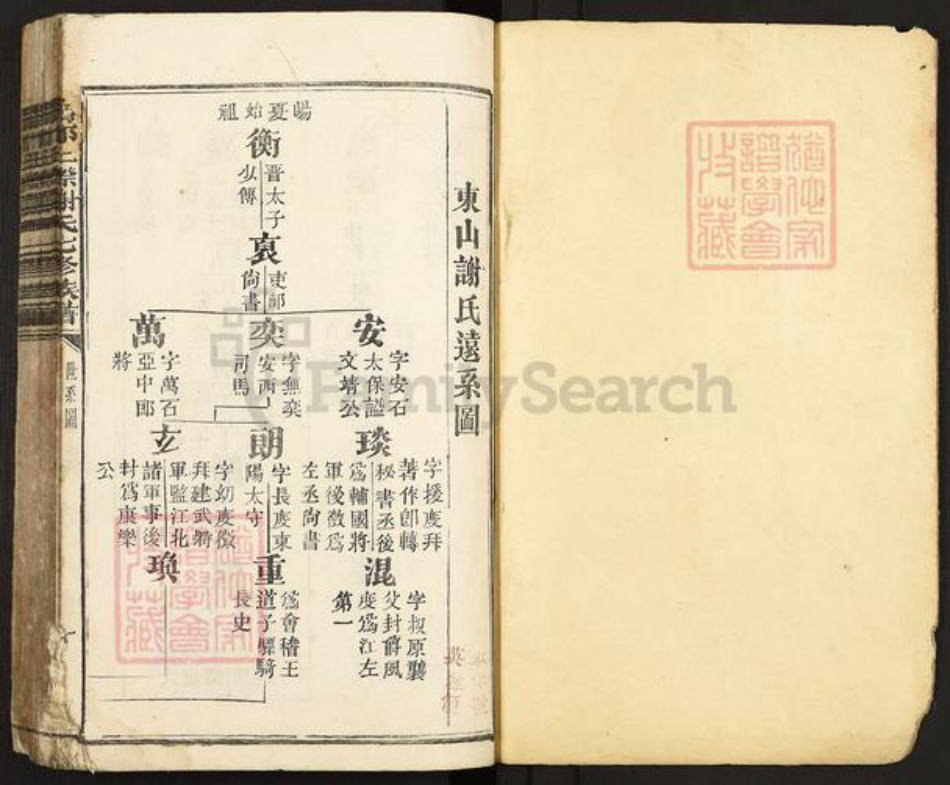 東山謝氏遠系圖
陽夏始祖
衡
晋太子
少傅
裒
吏部
尙書
安
字安石
太保諡
文靖公
奕
字無奕
安西
司馬
萬
字萬石
亞中郎
將
琰
字援度拜
著作郎轉
秘書丞後
爲輔國將
軍後徵爲
左丞尙書
朗
字長度東
陽太守
玄
字幼度徵
拜建武將
軍監江北
諸軍事後
封爲康樂
公
混
字叔原襲
父封爵風
度爲江左
第一
重
爲會稽王
道子驃騎
長史
瑍
謝氏七修族譜
世系圖
譜學會
收藏
FamilySearch